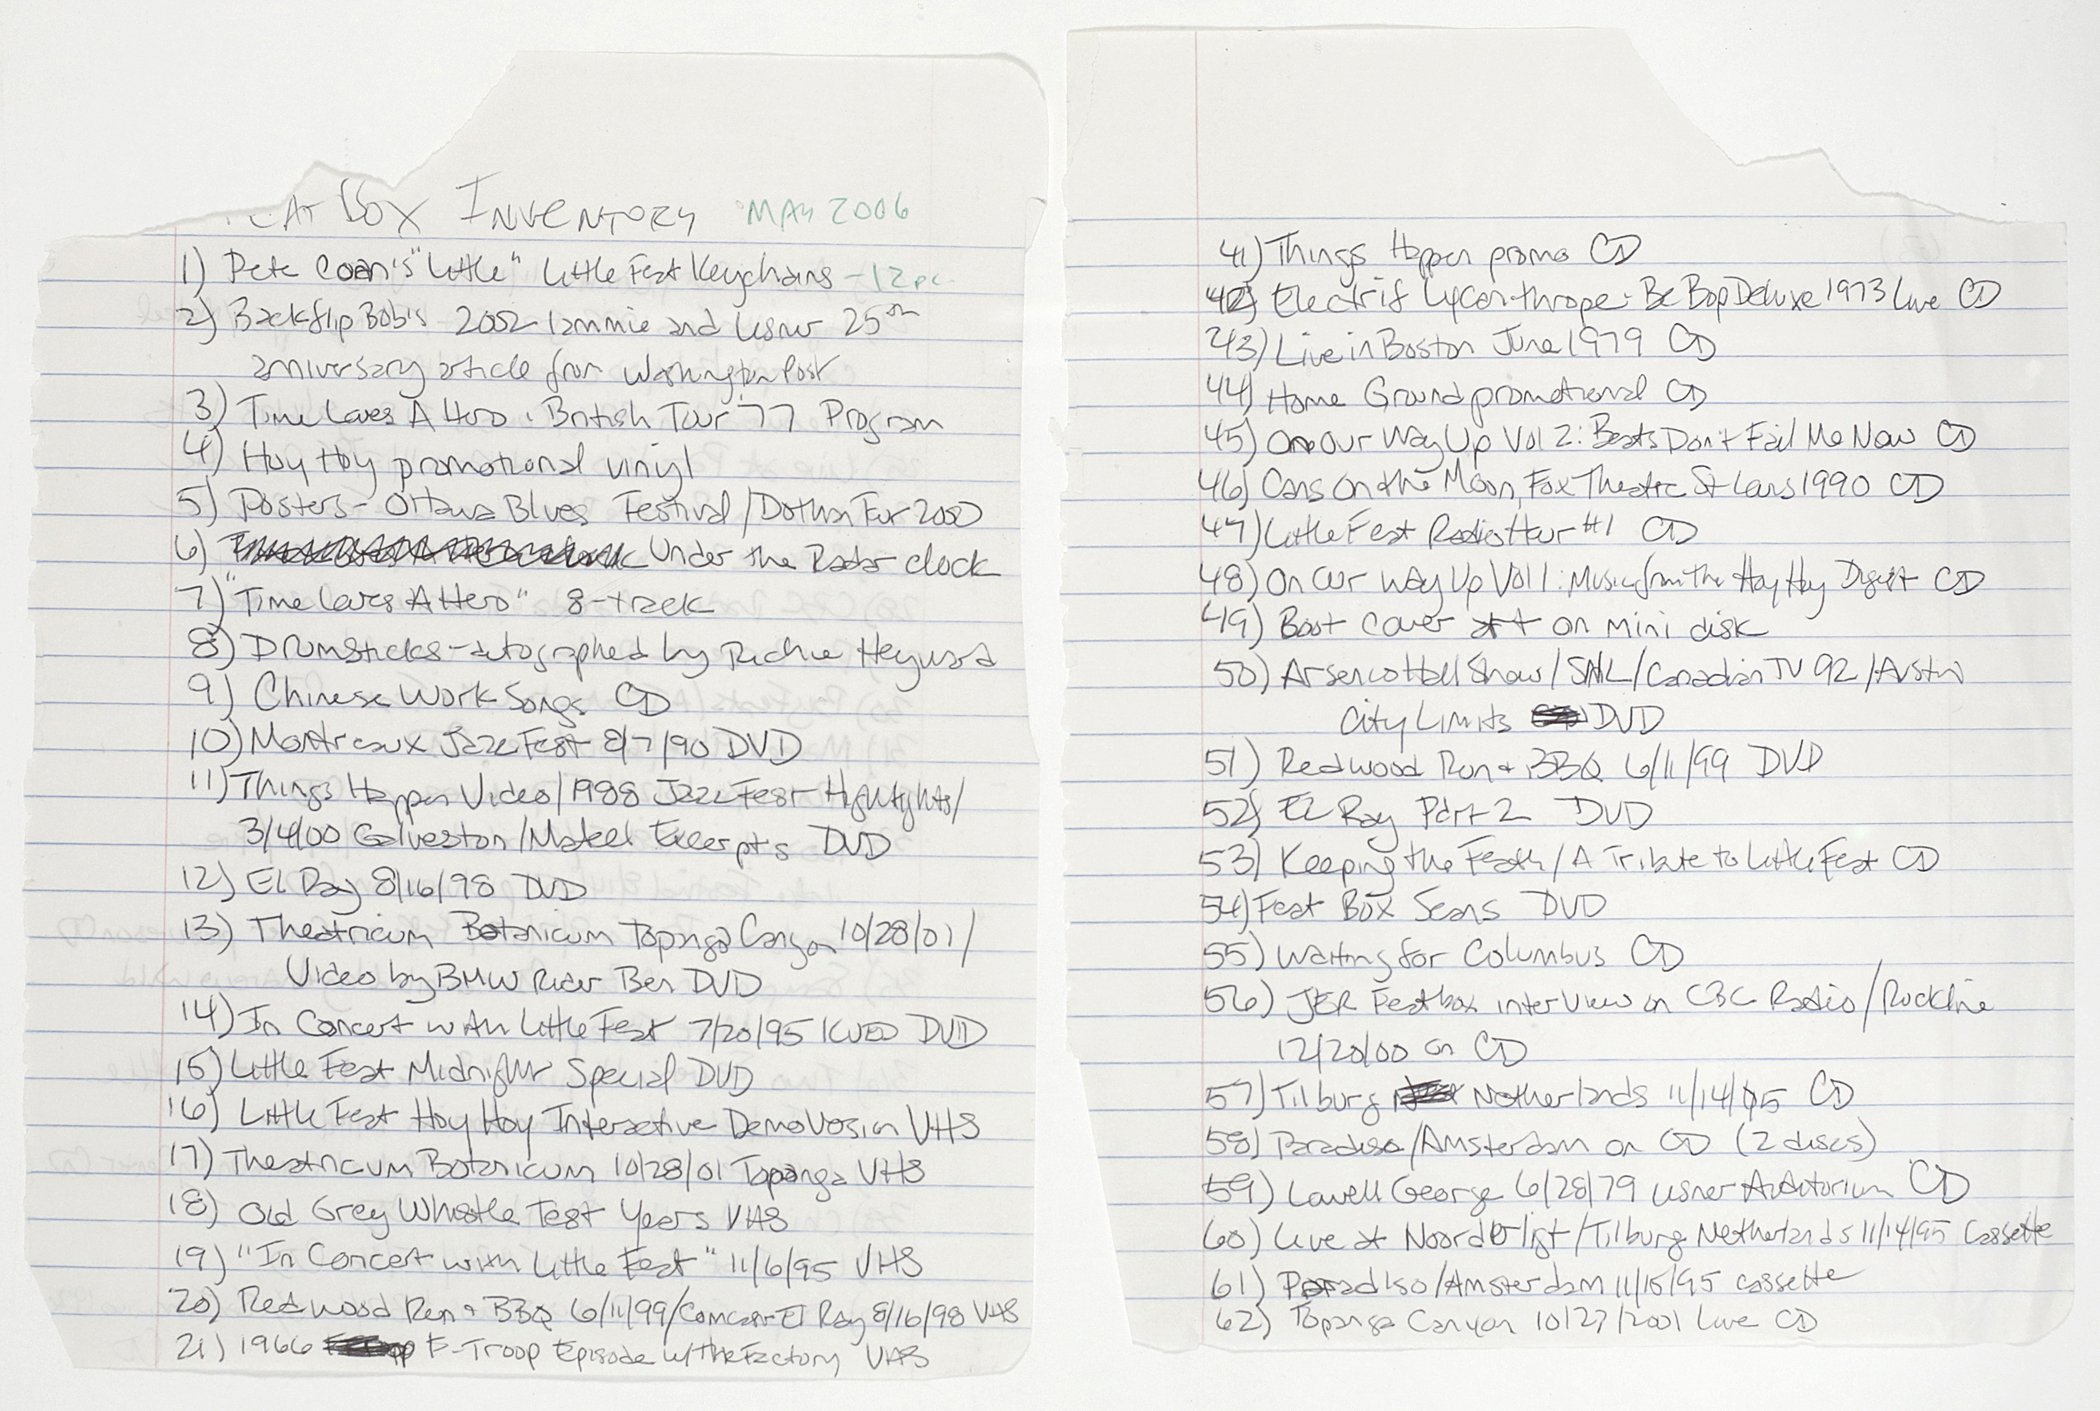 EAT BOX INVENTORY MAY 2006
1) Pete Coan's "Little" Little Feat Keychains - 12 pc.
2) Backflip Bob's 2002 Lannie and Lisner 25th
anniversary article from Washington Post
3) Time Loves A Hero : British Tour '77 Program
4) Hoy Hoy promotional vinyl
5) Posters - Ottawa Blues Festival / Dothan Fur 2000
6) Under the Radar clock
7) "Time Loves A Hero" 8-track
8) Drumsticks - autographed by Richie Hayward
9) Chinese Work Songs CD
10) Montreaux Jazz Fest 8/7/90 DVD
11) Things Happen Video / 1988 Jazz Fest Highlights /
3/4/00 Galveston / Makell Excerpts DVD
12) El Ray 8/16/98 DVD
13) Theatricum Botanicum Topanga Canyon 10/28/01 /
Video by BMW Rider Ben DVD
14) In Concert with Little Feat 7/20/95 KUED DVD
15) Little Feat Midnight Special DVD
16) Little Feat Hoy Hoy Interactive Demo Version VHS
17) Theatricum Botanicum 10/28/01 Topanga VHS
18) Old Grey Whistle Test Years VHS
19) "In Concert with Little Feat" 11/6/95 VHS
20) Redwood Run + BBQ 6/11/99 / Comcast El Ray 8/16/98 VHS
21) 1966 F-Troop Episode w/ the Factory VHS
41) Things Happen promo CD
42) Electrif Lycanthrope - Be Bop Deluxe 1973 Live CD
43) Live in Boston June 1979 CD
44) Home Ground promotional CD
45) On Our Way Up Vol 2 : Beats Don't Fail Me Now CD
46) Cans On the Moon, Fox Theatre St Louis 1990 CD
47) Little Feat Radio Hour #1 CD
48) On Our Way Up Vol 1 : Music from the Hoy Hoy Digest CD
49) Boot cover art on mini disk
50) Arsenio Hall Show / SNL / Canadian TV 92 / Austin
City Limits DVD
51) Redwood Run + BBQ 6/11/99 DVD
52) El Ray Part 2 DVD
53) Keeping the Feath / A Tribute to Little Feat CD
54) Feat Box Scans DVD
55) Waiting for Columbus CD
56) JER Featbox interview on CBC Radio / Rockline
12/20/00 on CD
57) Tilburg Netherlands 11/14/95 CD
58) Paradiso / Amsterdam on CD (2 discs)
59) Lowell George 6/28/79 Lisner Auditorium CD
60) Live at Noorderligt / Tilburg Netherlands 11/14/95 Cassette
61) Paradiso / Amsterdam 11/15/95 cassette
62) Topanga Canyon 10/27/2001 Live CD